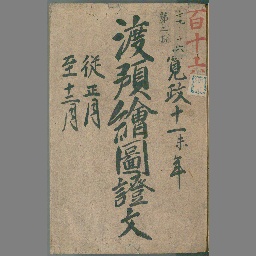 百十
寛政十一未年
渡預繪圖證文
従正月
至十二月